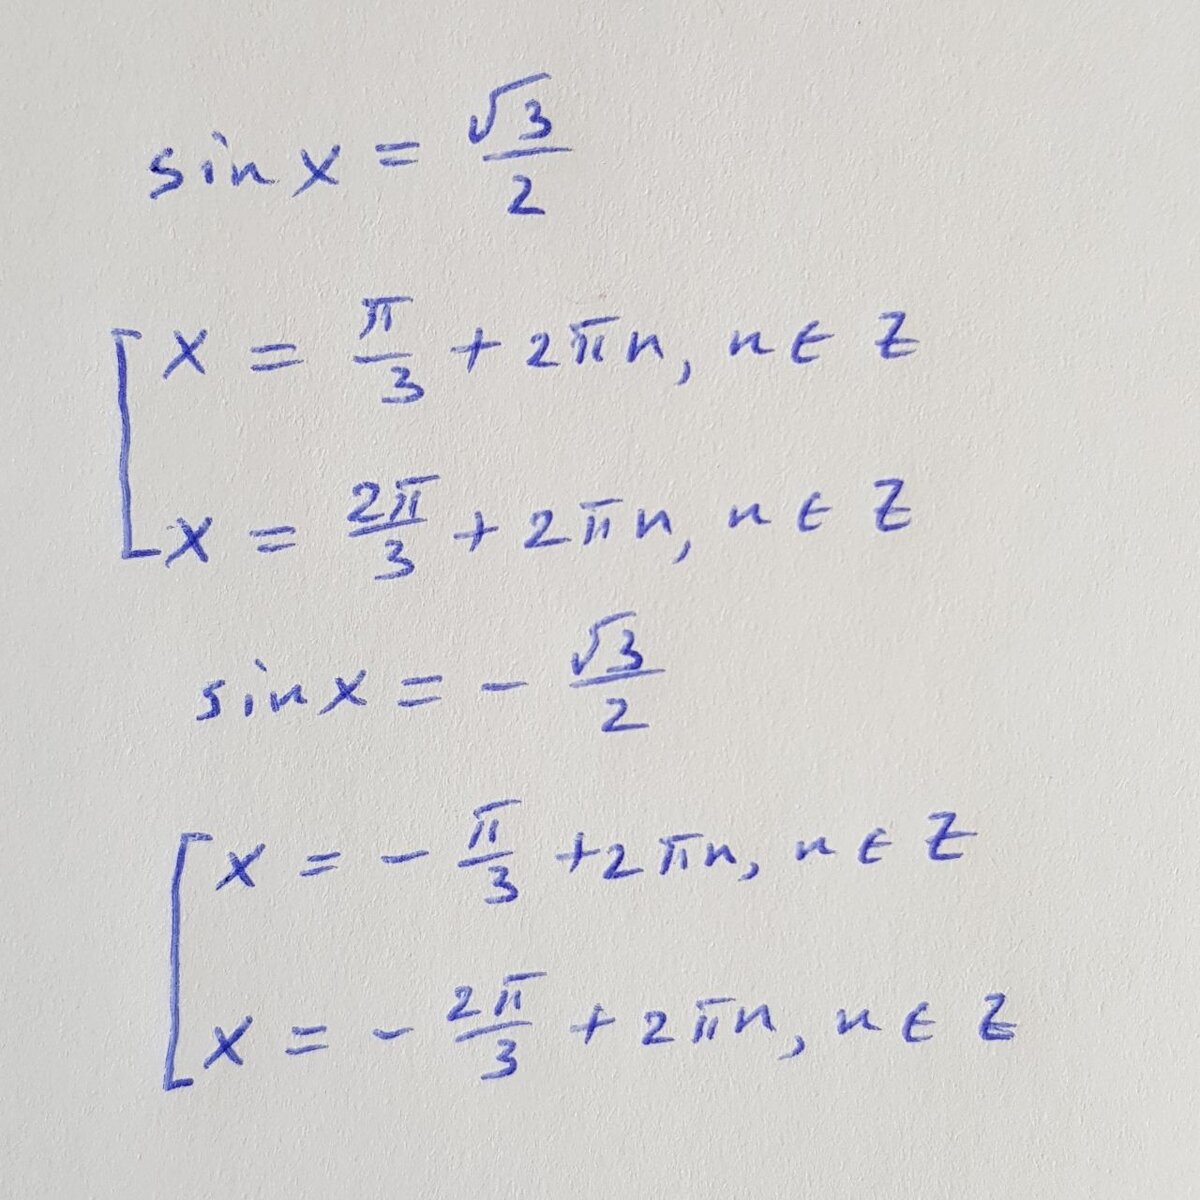 sin x = √3/2
x = π/3 + 2πn, n ∈ Z
x = 2π/3 + 2πn, n ∈ Z
sin x = - √3/2
x = - π/3 + 2πn, n ∈ Z
x = - 2π/3 + 2πn, n ∈ Z